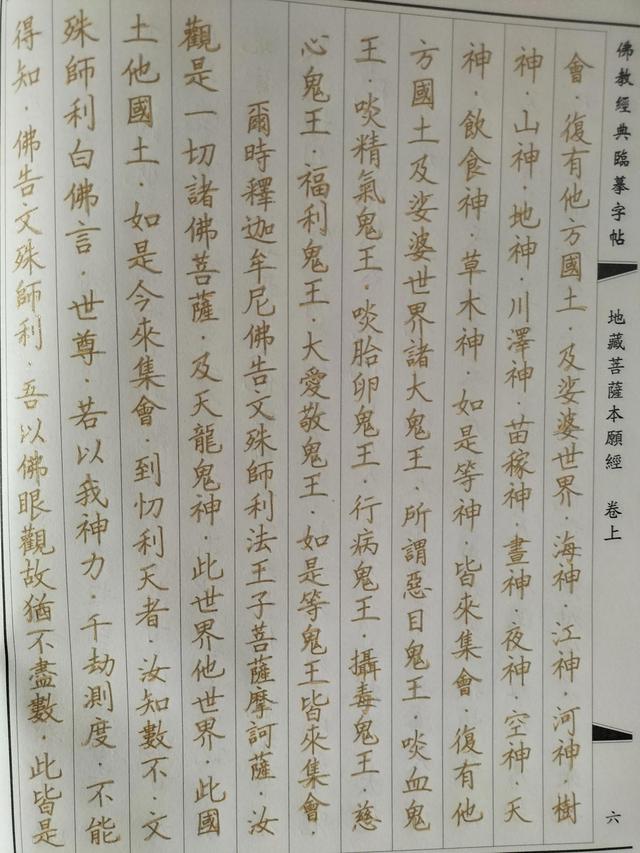 佛教經典臨摹字帖
地藏菩薩本願經 卷上
六
會·復有他方國土·及娑婆世界·海神·江神·河神·樹
神·山神·地神·川澤神·苗稼神·晝神·夜神·空神·天
神·飲食神·草木神·如是等神·皆來集會·復有他
方國土及娑婆世界諸大鬼王·所謂惡目鬼王·啖血鬼
王·啖精氣鬼王·啖胎卵鬼王·行病鬼王·攝毒鬼王·慈
心鬼王·福利鬼王·大愛敬鬼王·如是等鬼王皆來集會·
爾時釋迦牟尼佛告文殊師利法王子菩薩摩訶薩·汝
觀是一切諸佛菩薩·及天龍鬼神·此世界他世界·此國
土他國土·如是今來集會·到忉利天者·汝知數不·文
殊師利白佛言·世尊·若以我神力·千劫測度·不能
得知·佛告文殊師利·吾以佛眼觀故猶不盡數·此皆是